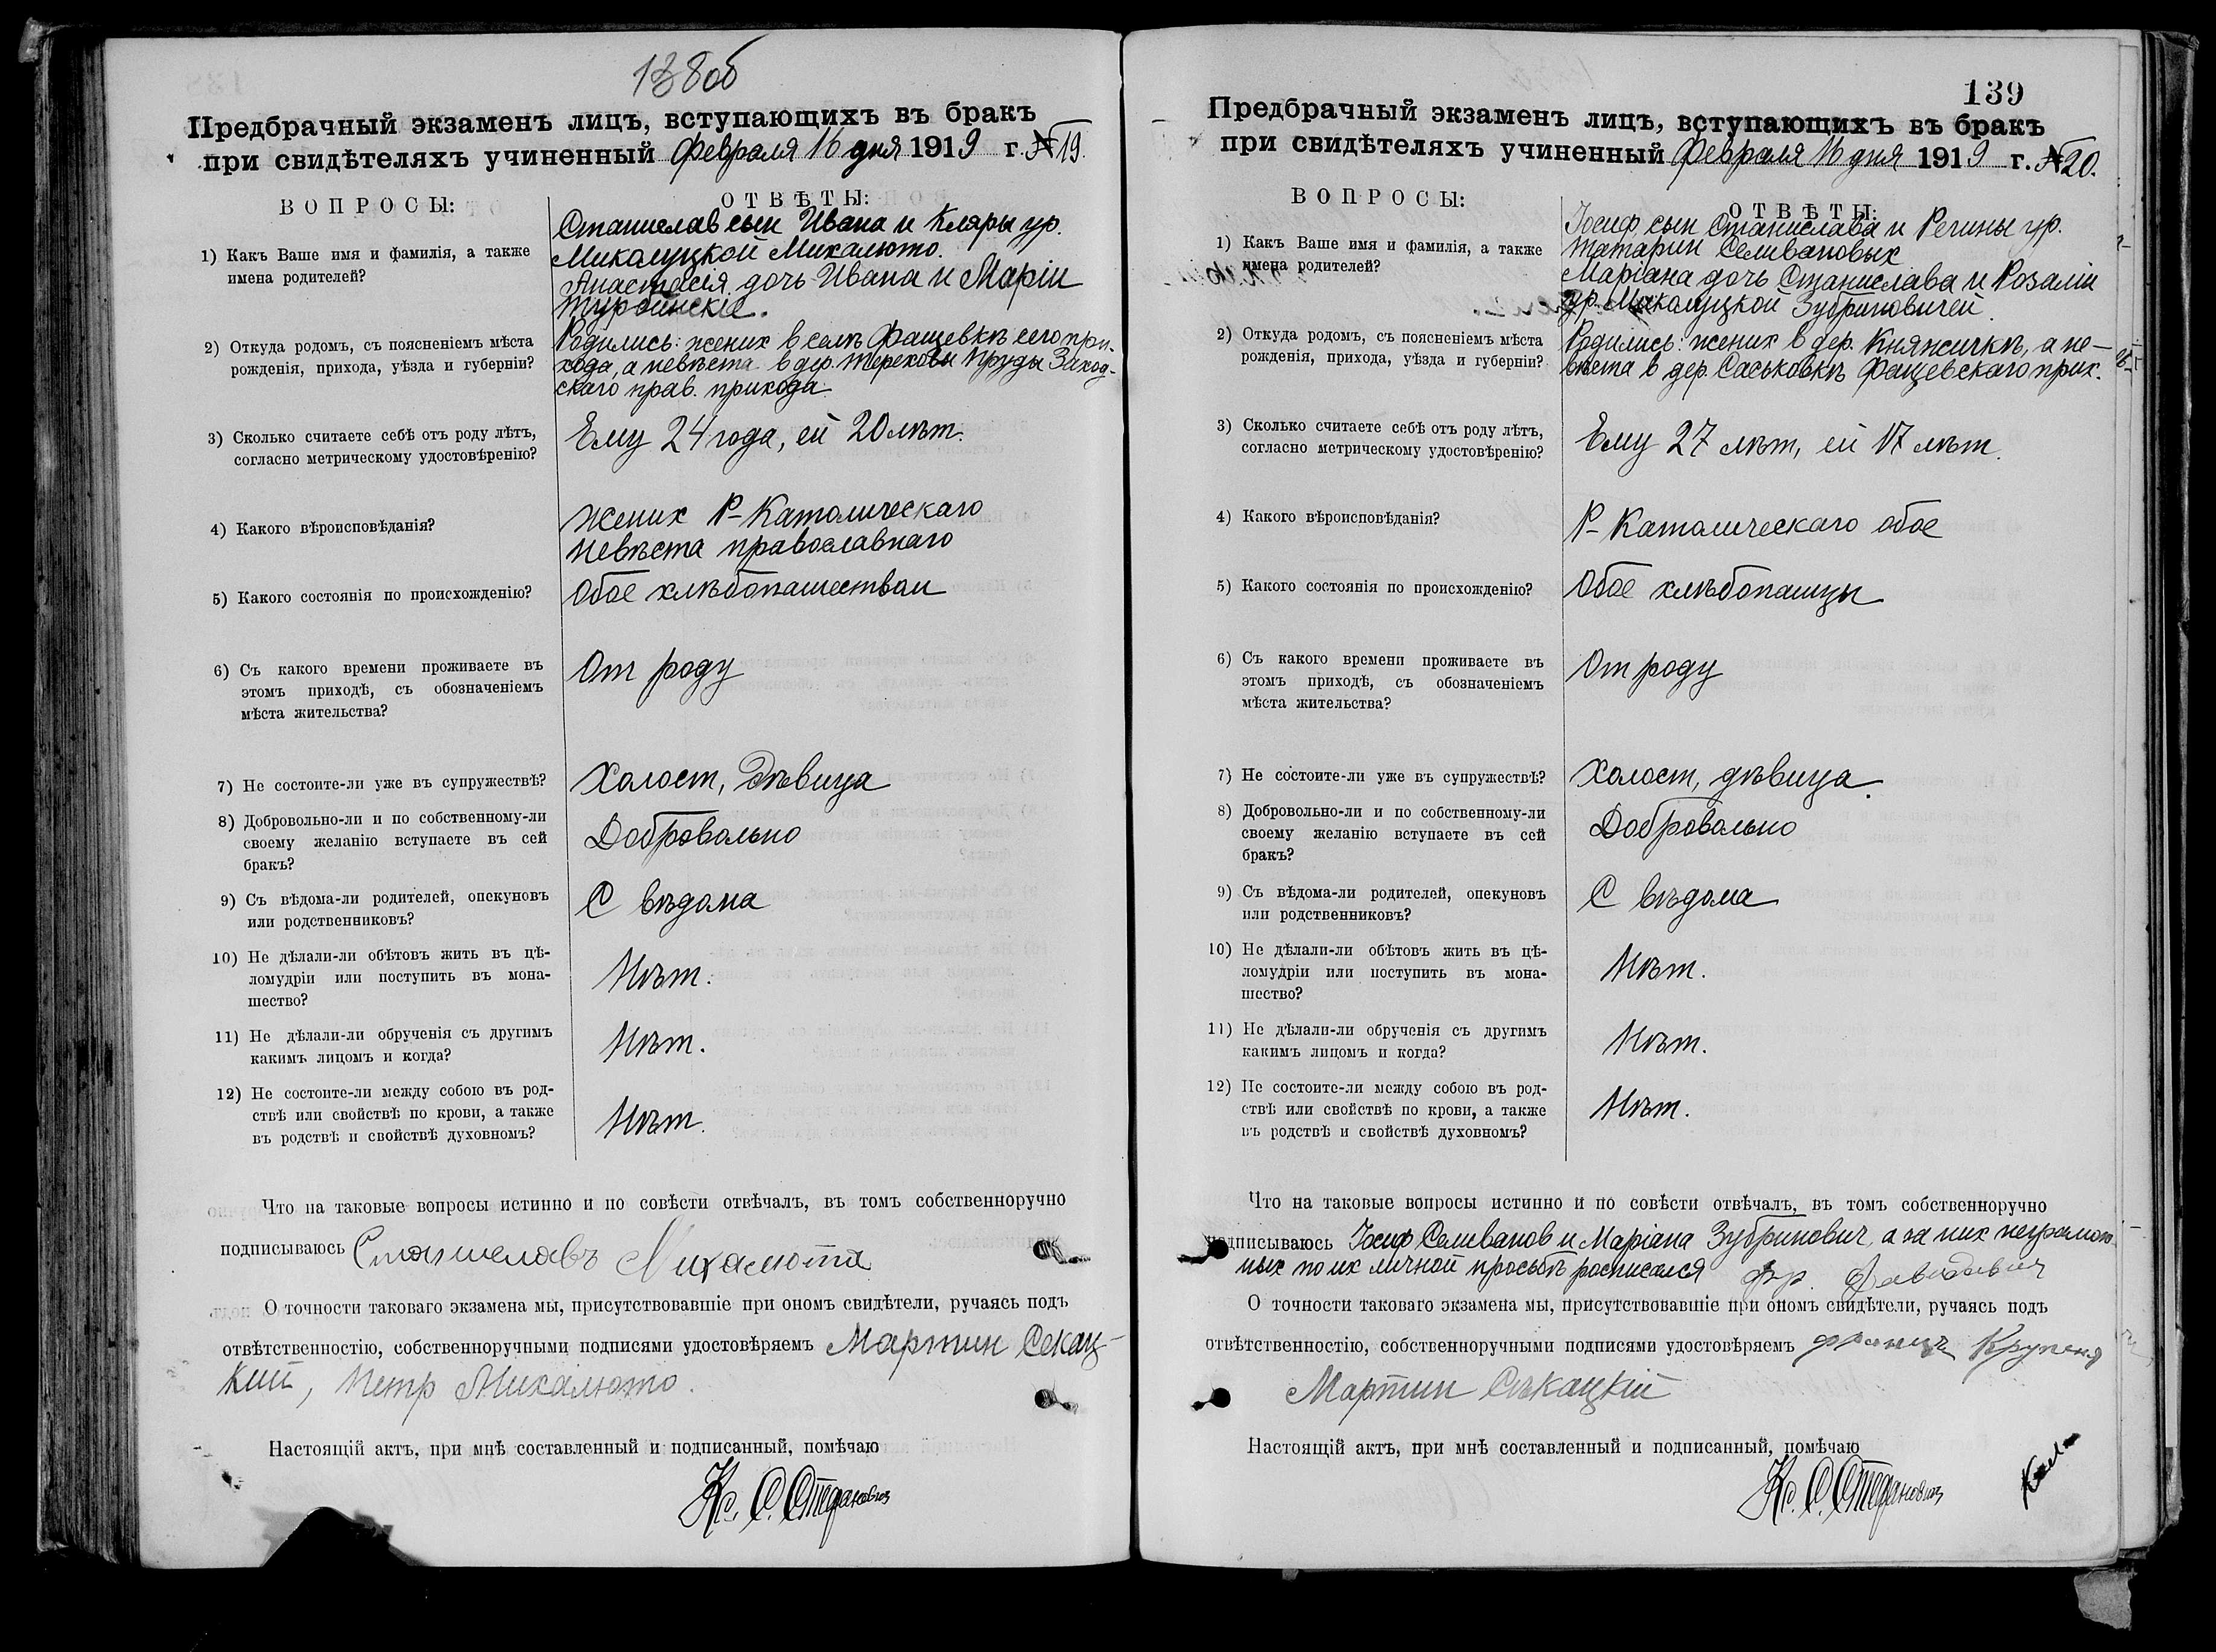 138об
Предбрачный экзаменъ лицъ, вступающихъ въ бракъ
при свидѣтеляхъ учиненный Февраля 16 дня 1919 г. №19.
ВОПРОСЫ:
ОТВѢТЫ:
1) Какъ Ваше имя и фамилія, а также
имена родителей?
Станислав сын Ивана и Кляры ур.
Микалуцкой Михалюто.
Анастасія дочь Ивана и Маріи
Турбинскіе.
2) Откуда родомъ, съ поясненіемъ мѣста
рожденія, прихода, уѣзда и губерніи?
Родились: жених в селѣ Фащевкѣ сего при-
хода, а невѣста в дер. Тереховы Пруды Заход-
скаго прав. прихода.
3) Сколько считаете себѣ отъ роду лѣтъ,
согласно метрическому удостовѣренію?
Ему 24 года, ей 20 лѣт.
4) Какого вѣроисповѣданія?
жених Р-Католическаго
невѣста православнаго
5) Какого состоянія по происхожденію?
Обое хлѣбопашествои
6) Съ какого времени проживаете въ
этомъ приходѣ, съ обозначеніемъ
мѣста жительства?
От роду
7) Не состоите-ли уже въ супружествѣ?
Холост, дѣвица
8) Добровольно-ли и по собственному-ли
своему желанію вступаете въ сей
бракъ?
Добровольно
9) Съ вѣдома-ли родителей, опекуновъ
или родственниковъ?
С вѣдома
10) Не дѣлали-ли обѣтовъ жить въ цѣ-
ломудріи или поступить въ мона-
шество?
Нѣт.
11) Не дѣлали-ли обрученія съ другимъ
какимъ лицомъ и когда?
Нѣт.
12) Не состоите-ли между собою въ род-
ствѣ или свойствѣ по крови, а также
въ родствѣ и свойствѣ духовномъ?
Нѣт.
Что на таковые вопросы истинно и по совѣсти отвѣчалъ, въ томъ собственноручно
подписываюсь Станиславъ Михалюта
О точности таковаго экзамена мы, присутствовавшіе при ономъ свидѣтели, ручаясь подъ
отвѣтственностію, собственноручными подписями удостовѣряемъ Мартин Секац-
кий, Петр Михалюто.
Настоящій актъ, при мнѣ составленный и подписанный, помѣчаю
Кс. С. Стефанович
139
Предбрачный экзаменъ лицъ, вступающихъ въ бракъ
при свидѣтеляхъ учиненный Февраля 16 дня 1919 г. №20.
ВОПРОСЫ:
ОТВѢТЫ:
1) Какъ Ваше имя и фамилія, а также
имена родителей?
Іосиф сын Станислава и Регины ур.
Татарин Селивановых
Маріана дочь Станислава и Розаліи
ур. Микалуцкой Зубриновичей.
2) Откуда родомъ, съ поясненіемъ мѣста
рожденія, прихода, уѣзда и губерніи?
Родились: жених в дер. Княжичкѣ, а не-
вѣста в дер. Саськовкѣ Фащевскаго прих.
3) Сколько считаете себѣ отъ роду лѣтъ,
согласно метрическому удостовѣренію?
Ему 27 лѣт, ей 17 лѣт.
4) Какого вѣроисповѣданія?
Р-Католическаго обое
5) Какого состоянія по происхожденію?
Обое хлѣбопашцы
6) Съ какого времени проживаете въ
этомъ приходѣ, съ обозначеніемъ
мѣста жительства?
От роду
7) Не состоите-ли уже въ супружествѣ?
Холост, дѣвица.
8) Добровольно-ли и по собственному-ли
своему желанію вступаете въ сей
бракъ?
Добровольно
9) Съ вѣдома-ли родителей, опекуновъ
или родственниковъ?
С вѣдома
10) Не дѣлали-ли обѣтовъ жить въ цѣ-
ломудріи или поступить въ мона-
шество?
Нѣт.
11) Не дѣлали-ли обрученія съ другимъ
какимъ лицомъ и когда?
Нѣт.
12) Не состоите-ли между собою въ род-
ствѣ или свойствѣ по крови, а также
въ родствѣ и свойствѣ духовномъ?
Нѣт.
Что на таковые вопросы истинно и по совѣсти отвѣчалъ, въ томъ собственноручно
подписываюсь Іосиф Селиванов и Маріана Зубринович, а за них неграмот-
ных по их личной просьбѣ росписался Фр. Давидович
О точности таковаго экзамена мы, присутствовавшіе при ономъ свидѣтели, ручаясь подъ
отвѣтственностію, собственноручными подписями удостовѣряемъ Францъ Крупеня
Мартин Сѣкацкій
Настоящій актъ, при мнѣ составленный и подписанный, помѣчаю
Кс. С. Стефанович